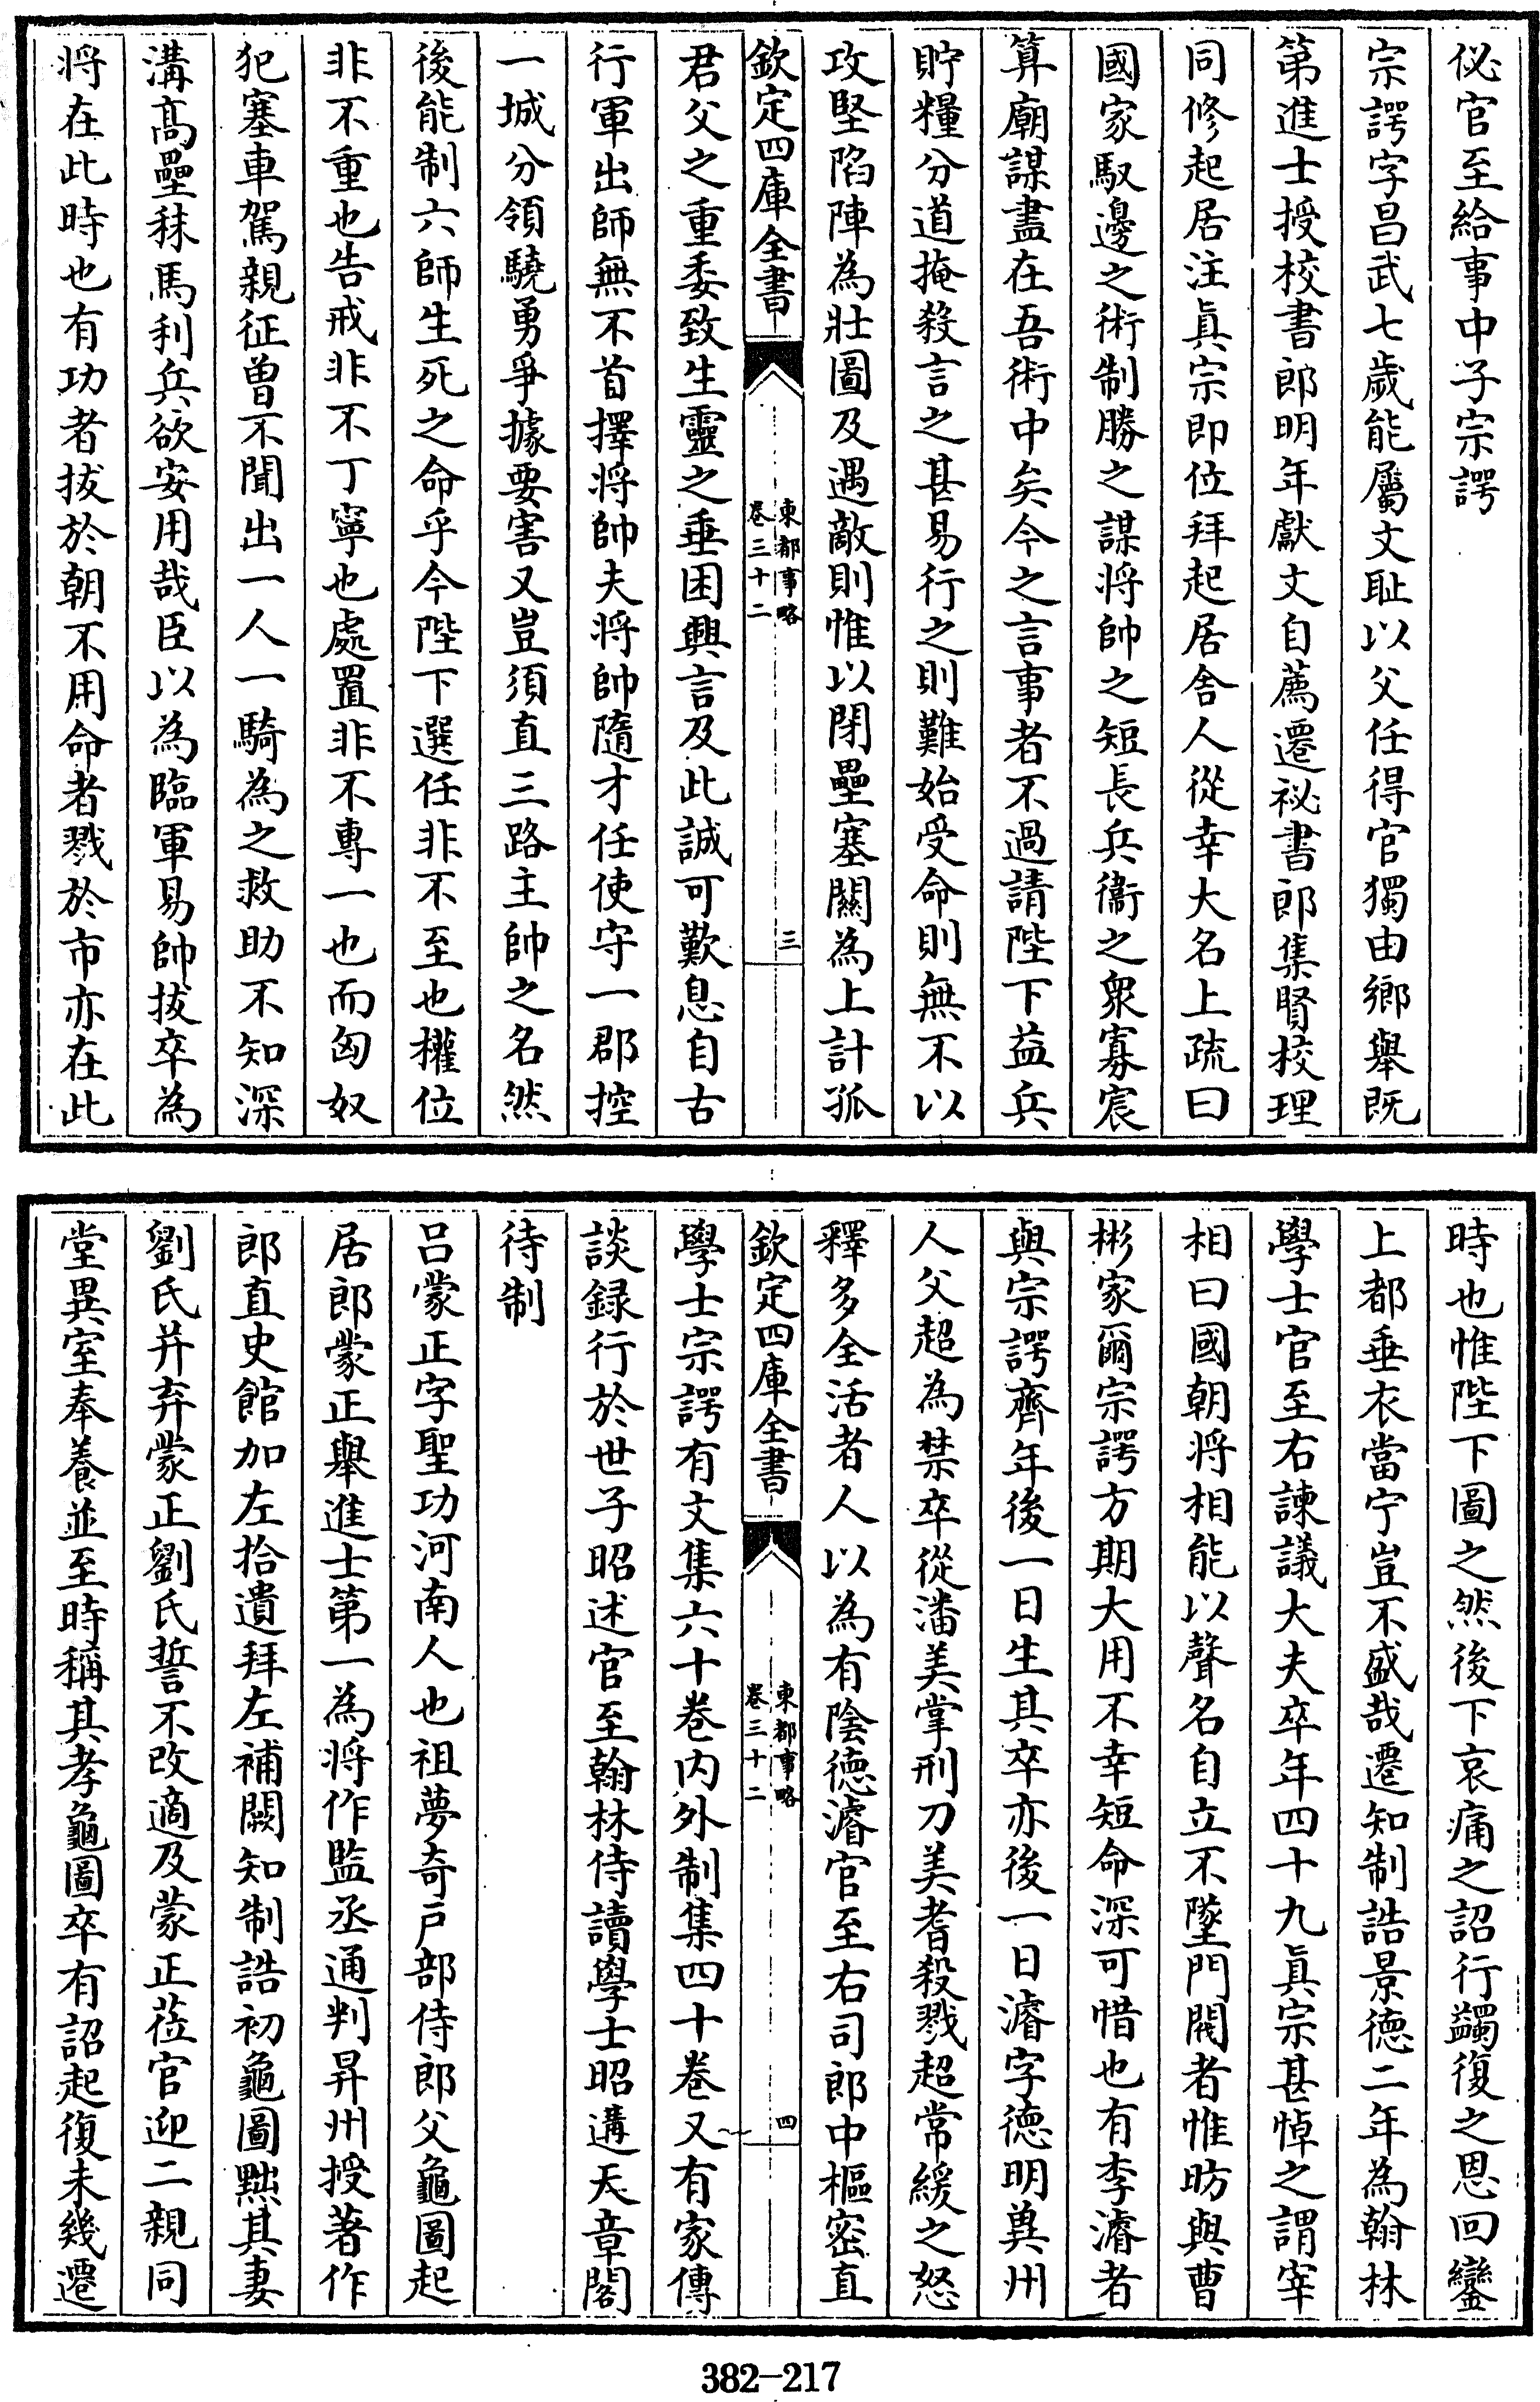 佖官至給事中子宗諤
宗諤字昌武七歲能屬文恥以父任得官獨由鄉舉既
第進士授校書郎明年獻文自薦遷祕書郎集賢校理
同修起居注眞宗即位拜起居舍人從幸大名上疏曰
國家馭邊之術制勝之謀將帥之短長兵衞之衆寡宸
算廟謀盡在吾術中矣今之言事者不過請陛下益兵
貯糧分道掩殺言之甚易行之則難始受命則無不以
攻堅陷陣為壯圖及遇敵則惟以閉壘塞關為上計孤
欽定四庫全書
東都事略
卷三十二
三
君父之重委致生靈之垂困興言及此誠可歎息自古
行軍出師無不首擇將帥夫將帥隨才任使守一郡控
一城分領驍勇爭據要害又豈須直三路主帥之名然
後能制六師生死之命乎今陛下選任非不至也權位
非不重也告戒非不丁寧也處置非不專一也而匈奴
犯塞車駕親征曽不聞出一人一騎為之救助不知深
溝髙壘秣馬利兵欲安用哉臣以為臨軍易帥拔卒為
將在此時也有功者拔於朝不用命者戮於市亦在此
時也惟陛下圖之然後下哀痛之詔行蠲復之恩回鑾
上都垂衣當宁豈不盛哉遷知制誥景德二年為翰林
學士官至右諫議大夫卒年四十九眞宗甚悼之謂宰
相曰國朝將相能以聲名自立不墜門閥者惟昉與曹
彬家爾宗諤方期大用不幸短命深可惜也有李濬者
與宗諤齊年後一日生其卒亦後一日濬字德明冀州
人父超為禁卒從潘美掌刑刀美耆殺戮超常緩之怒
釋多全活者人以為有陰德濬官至右司郎中樞密直
欽定四庫全書
東都事略
卷三十二
四
學士宗諤有文集六十卷内外制集四十卷又有家傳
談録行於世子昭述官至翰林侍讀學士昭遘天章閣
待制
呂蒙正字聖功河南人也祖夢奇戸部侍郎父龜圖起
居郎蒙正舉進士第一為將作監丞通判昇州授著作
郎直史館加左拾遺拜左補闕知制誥初龜圖黜其妻
劉氏并弃蒙正劉氏誓不改適及蒙正莅官迎二親同
堂異室奉養並至時稱其孝龜圖卒有詔起復未幾遷
382-217